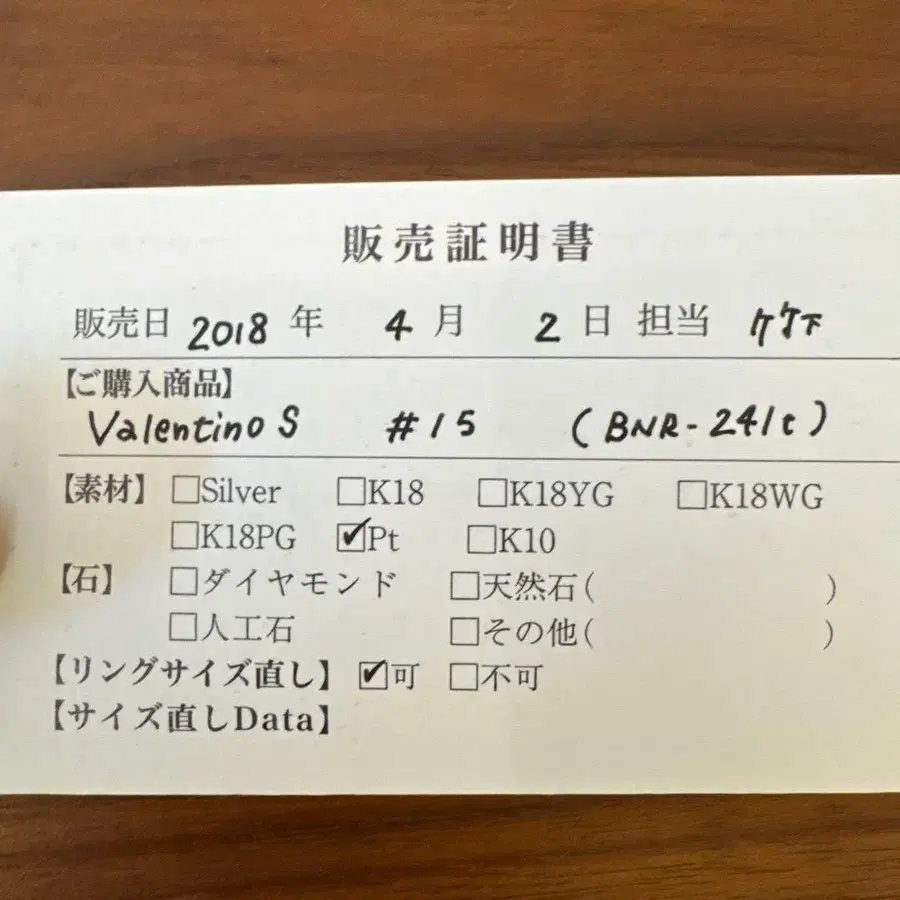 販売証明書
販売日 2018 年 4 月 2 日 担当 竹下
【ご購入商品】
Valentino S #15 (BNR-241t)
【素材】 □Silver □K18 □K18YG □K18WG
□K18PG ☑Pt □K10
【石】 □ダイヤモンド □天然石( )
□人工石 □その他( )
【リングサイズ直し】 ☑可 □不可
【サイズ直しData】